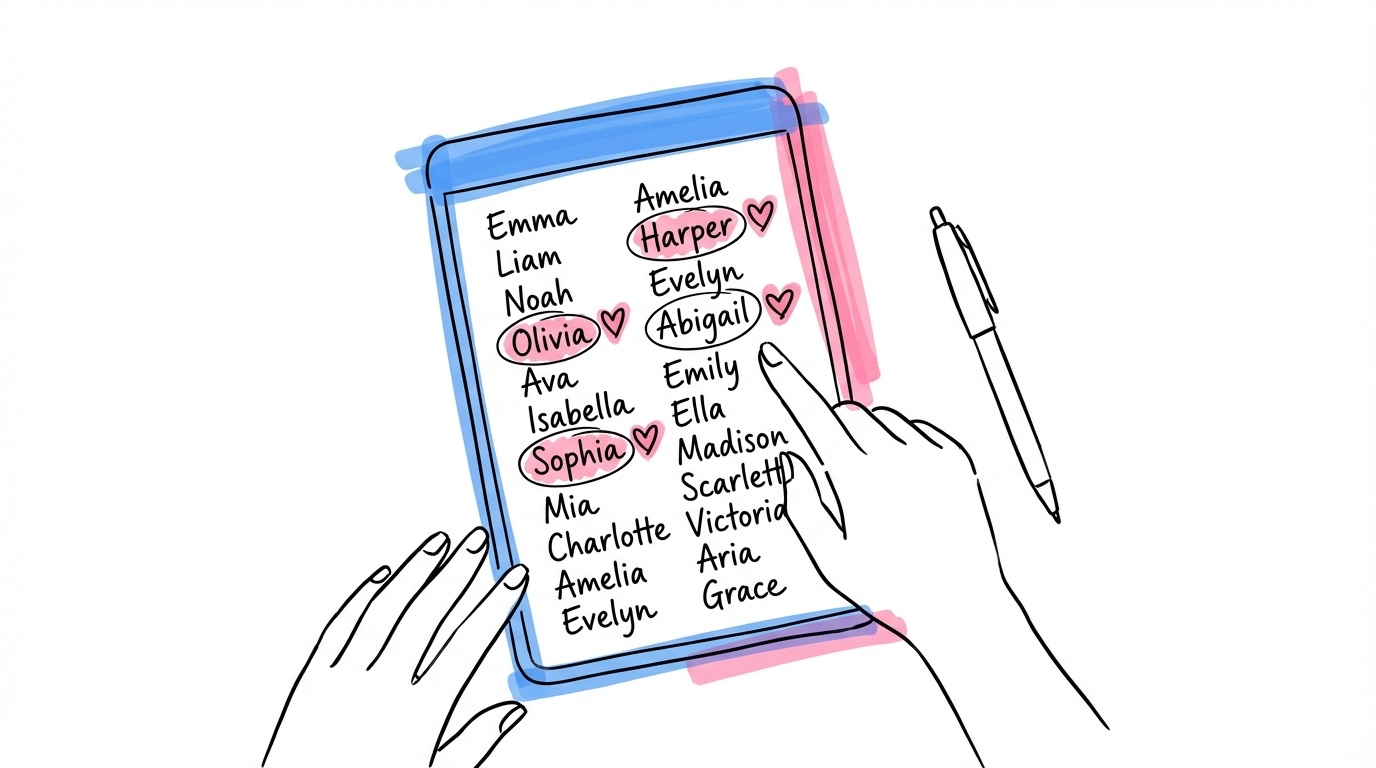 Emma
Liam
Noah
Olivia
Ava
Isabella
Sophia
Mia
Charlotte
Amelia
Evelyn
Amelia
Harper
Evelyn
Abigail
Emily
Ella
Madison
Scarlett
Victoria
Aria
Grace